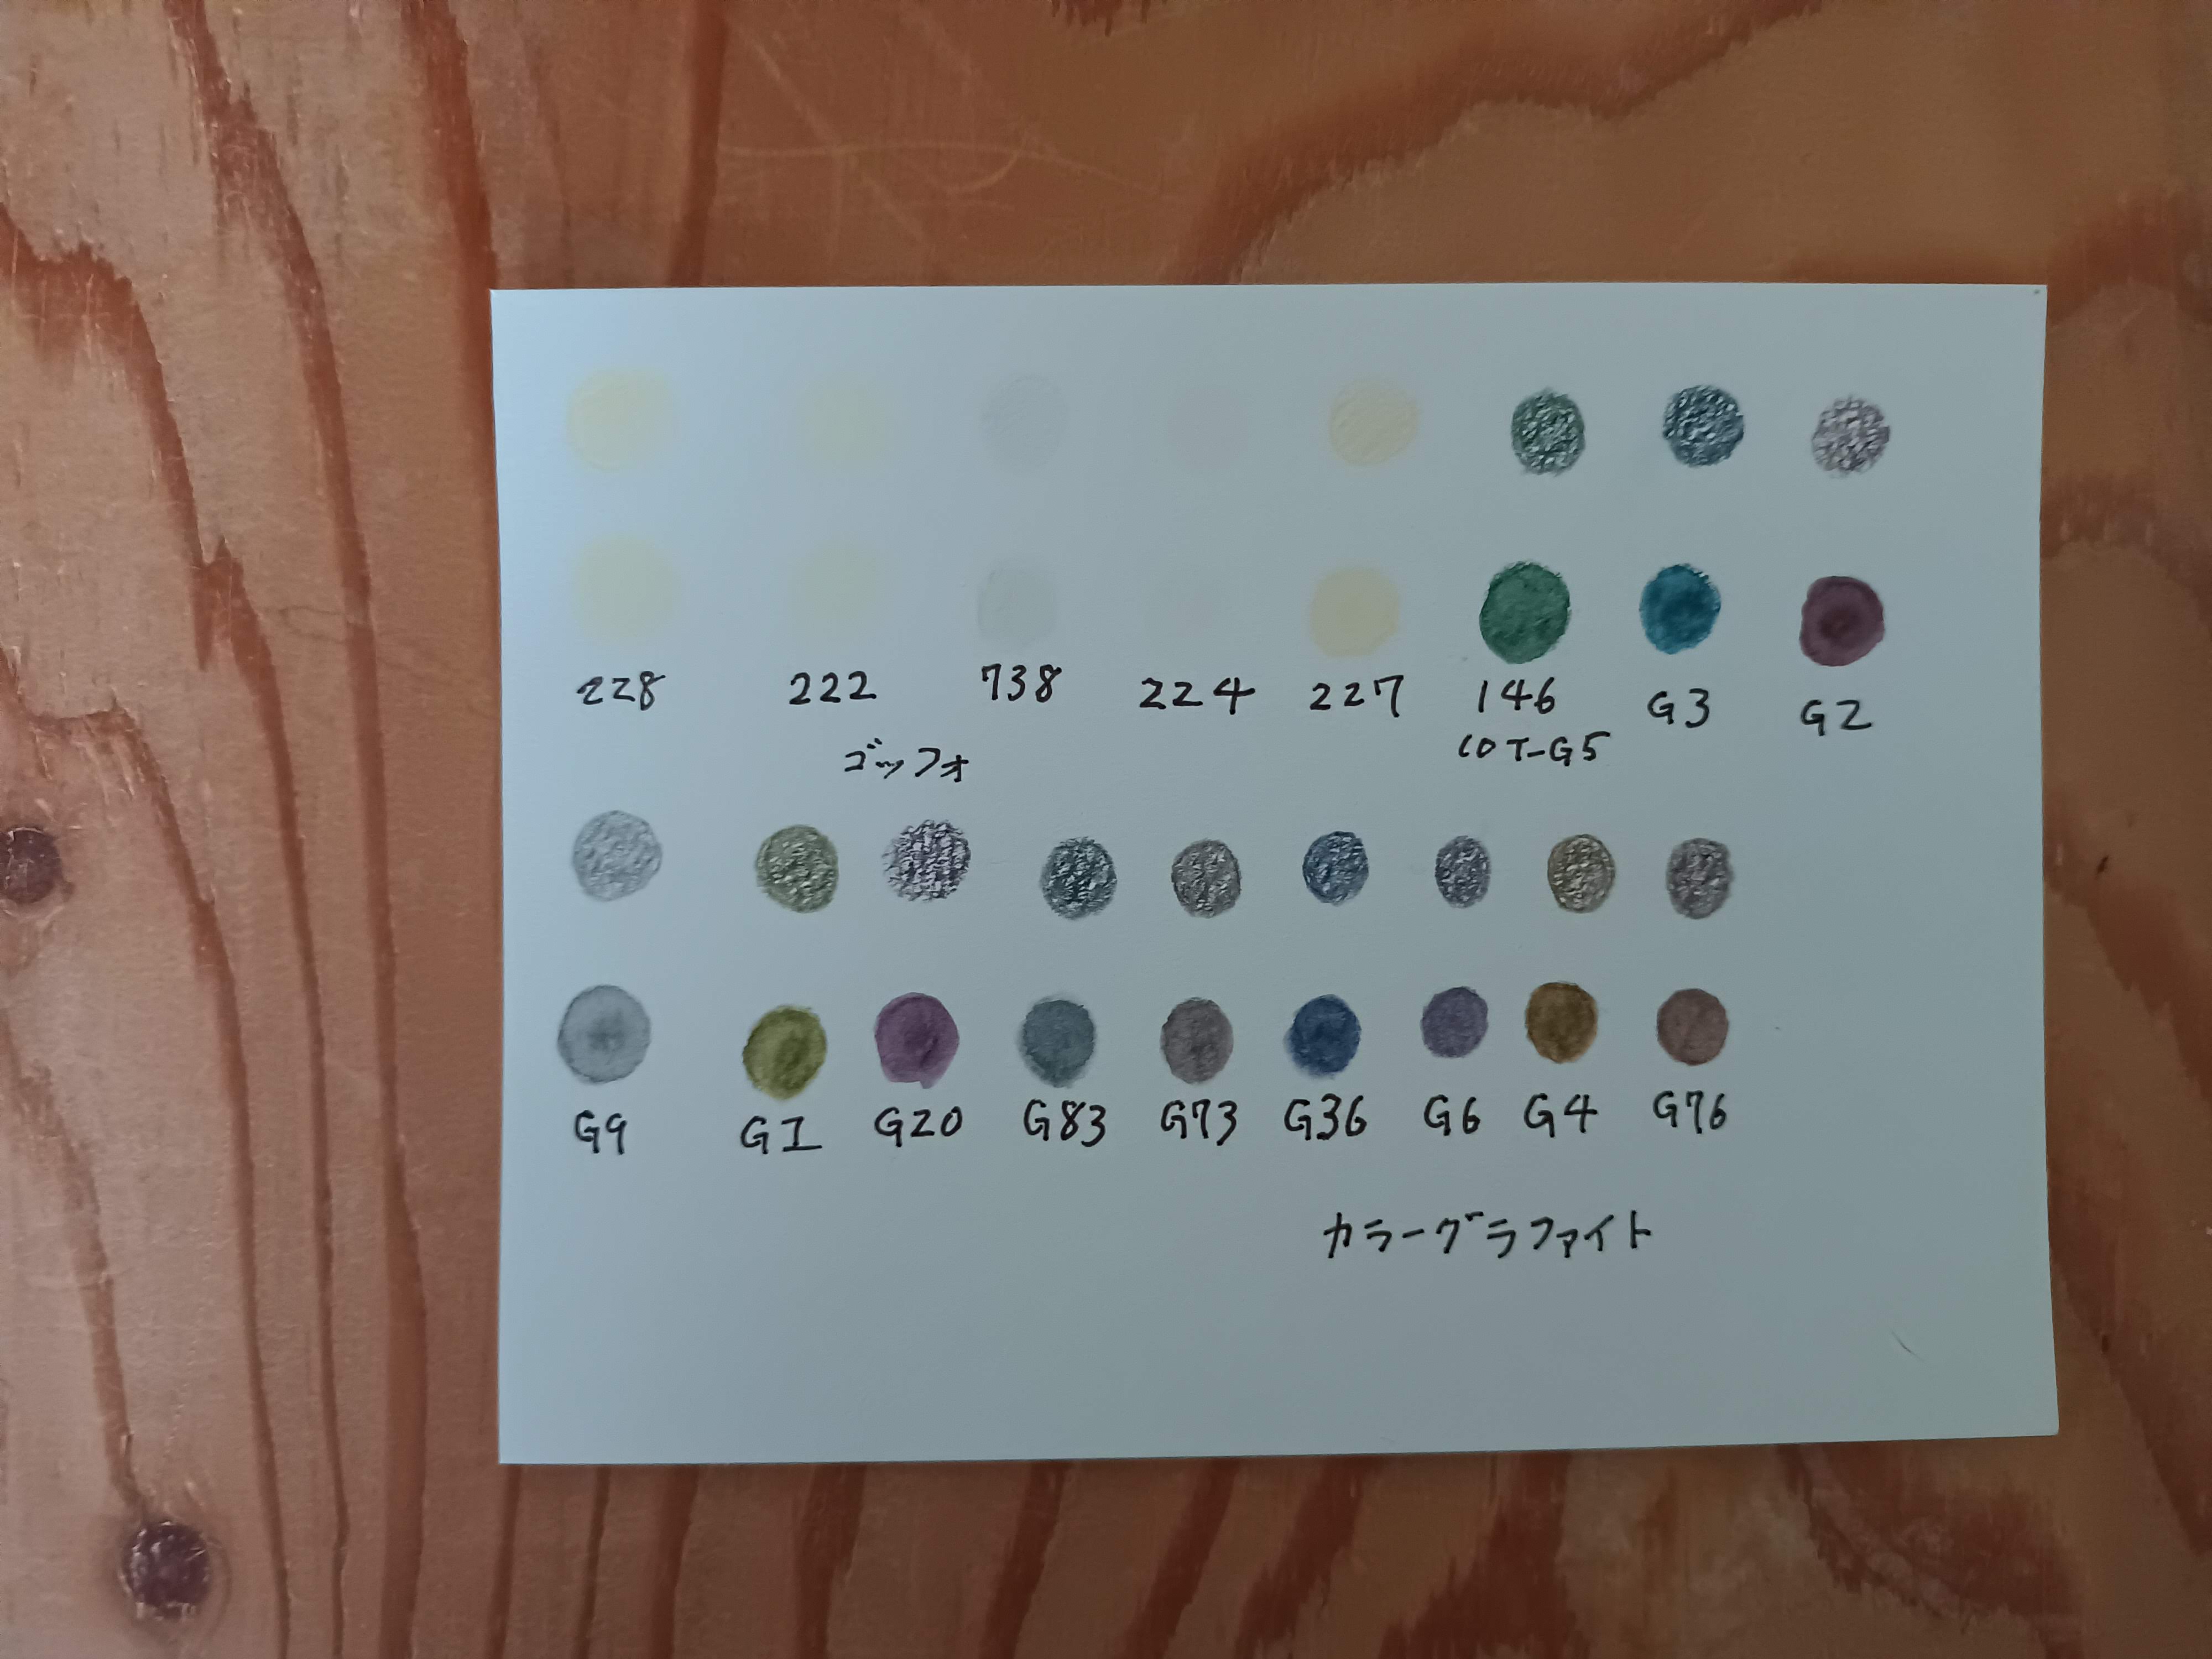 228 222 738 224 227 146 G3 G2
ゴッフォ
COT-G5
G9 G1 G20 G83 G73 G36 G6 G4 G76
カラーグラファイト